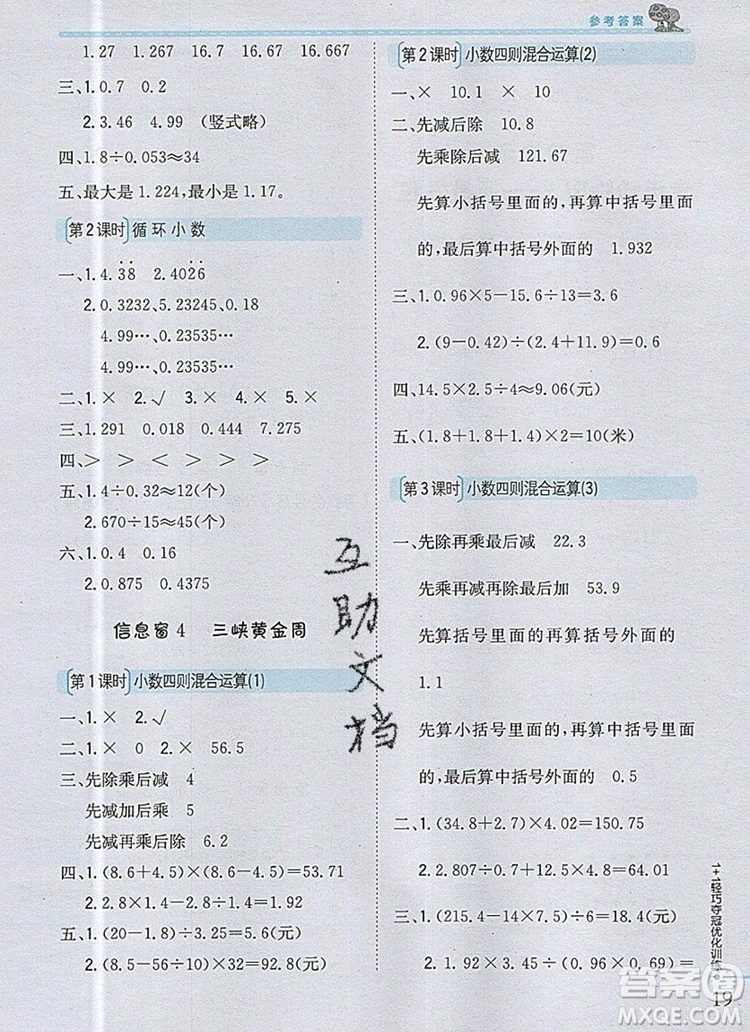 参考答案
1.27 1.267 16.7 16.67 16.667
三、1.0.7 0.2
2.3.46 4.99 （竖式略）
四、1.8÷0.053≈34
五、最大是1.224,最小是1.17。
第2课时 循环小数
一、1.4.3̇8̇ 2.4.02̇6̇
2.0.3232、5.23245、0.18
4.99…、0.23535…
4.99…、0.23535…
二、1.× 2.√ 3.× 4.× 5.×
三、1.291 0.018 0.444 0.318
四、> < > > > >
五、1.4÷0.32≈12(个)
2.670÷15≈45(个)
六、1.0.4 0.16
2.0.81 0.4375
信息窗4 三峡黄金周
第1课时 小数四则混合运算(1)
一、1.× 2.√
二、1.× 0 2.× 56.5
三、先除乘后减 4
先减加后乘 5
先减再乘后除 6.2
四、1.(8.6+4.5)×(8.6-4.5)=53.71
五、1.(20-1.8)÷3.25=5.6(元)
2.(8.5-56÷10)×32=92.8(元)
第2课时 小数四则混合运算(2)
一、× 10.1 × × 10
二、先减后除 10.8
先乘除后减 121.67
先算小括号里面的,再算中括号里面的,最后算中括号外面的 1.932
三、1.0.96×5-15.6÷13=3.6
2.(9-0.42)÷(2+4.6)=1.3
四、14.5×2.5÷4≈9.06(元)
五、(1.8+1.8+1.4)×2=10(米)
第3课时 小数四则混合运算(3)
一、先除再乘最后减 22.3
先乘再减再除最后加 53.9
先算括号里面的再算括号外面的
1.1
先算小括号里面的,再算中括号里面的,最后算中括号外面的 0.5
二、1.(34.8+7.2÷4.8)×4.2=150.75
2.2.807÷[(1.3+0.8)×0.7]≈1.91
三、1.(215.4-14×9.6)÷(1.5×6)=9(元)
2.1.92×0.96÷(0.96×0.69)≈2.8(元)
互
助
文
档
1+1轻巧夺冠优化训练
19
答案圈
MXQE.COM